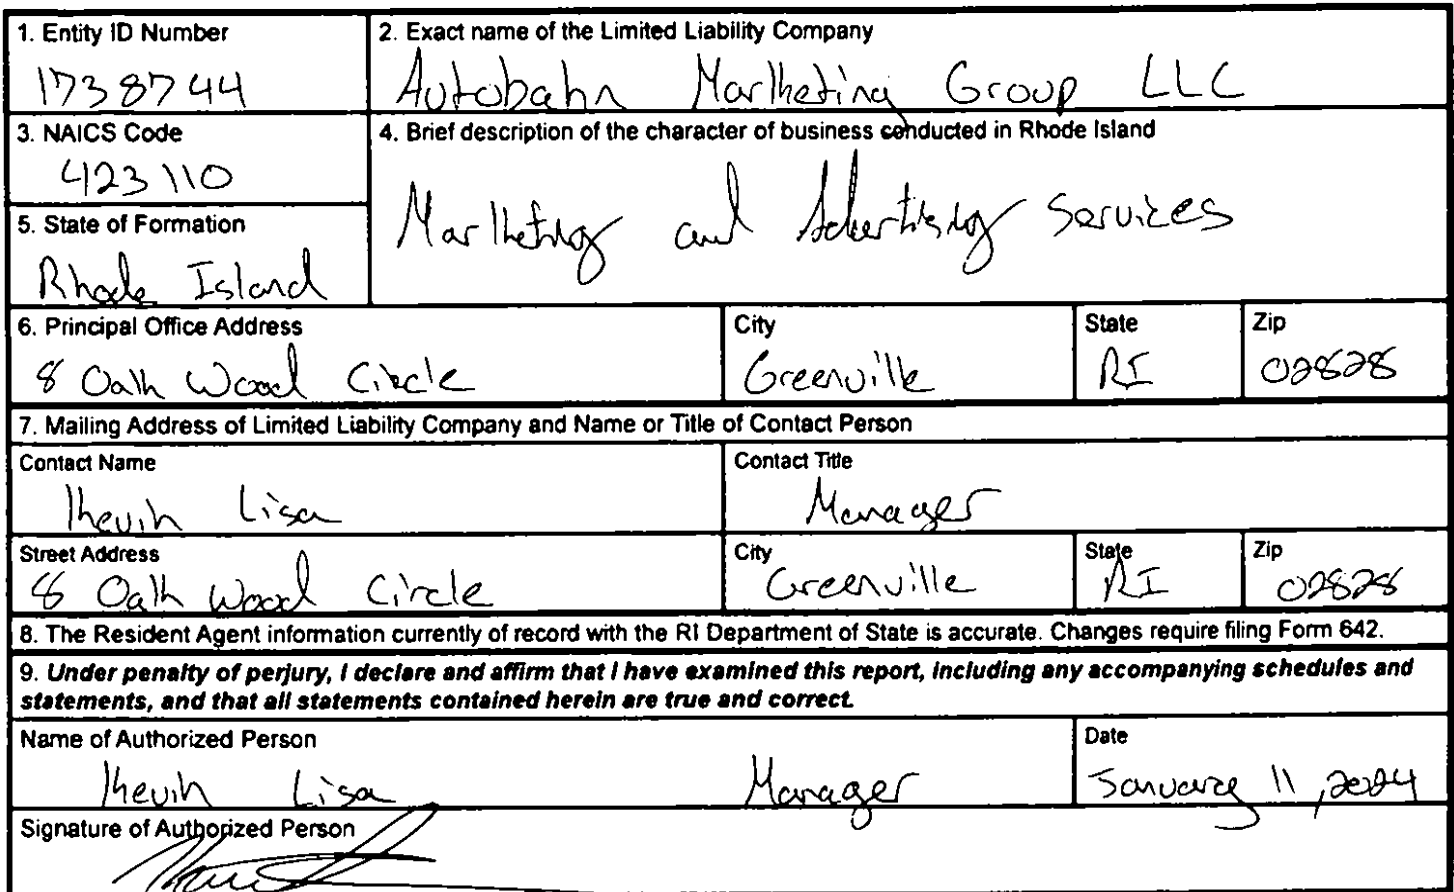 1. Entity ID Number
1738744
2. Exact name of the Limited Liability Company
Autobahn Marketing Group LLC
3. NAICS Code
423110
4. Brief description of the character of business conducted in Rhode Island
Marketing and Advertising Services
5. State of Formation
Rhode Island
6. Principal Office Address
8 Oak Wood Circle
City
Greenville
State
RI
Zip
02828
7. Mailing Address of Limited Liability Company and Name or Title of Contact Person
Contact Name
Kevin Lisa
Contact Title
Manager
Street Address
8 Oak Wood Circle
City
Greenville
State
RI
Zip
02828
8. The Resident Agent information currently of record with the RI Department of State is accurate. Changes require filing Form 642.
9. Under penalty of perjury, I declare and affirm that I have examined this report, including any accompanying schedules and
statements, and that all statements contained herein are true and correct.
Name of Authorized Person
Kevin Lisa Manager
Date
January 11, 2024
Signature of Authorized Person